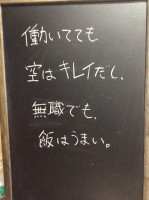 働いてても
空はキレイだし、
無職でも、
飯はうまい。